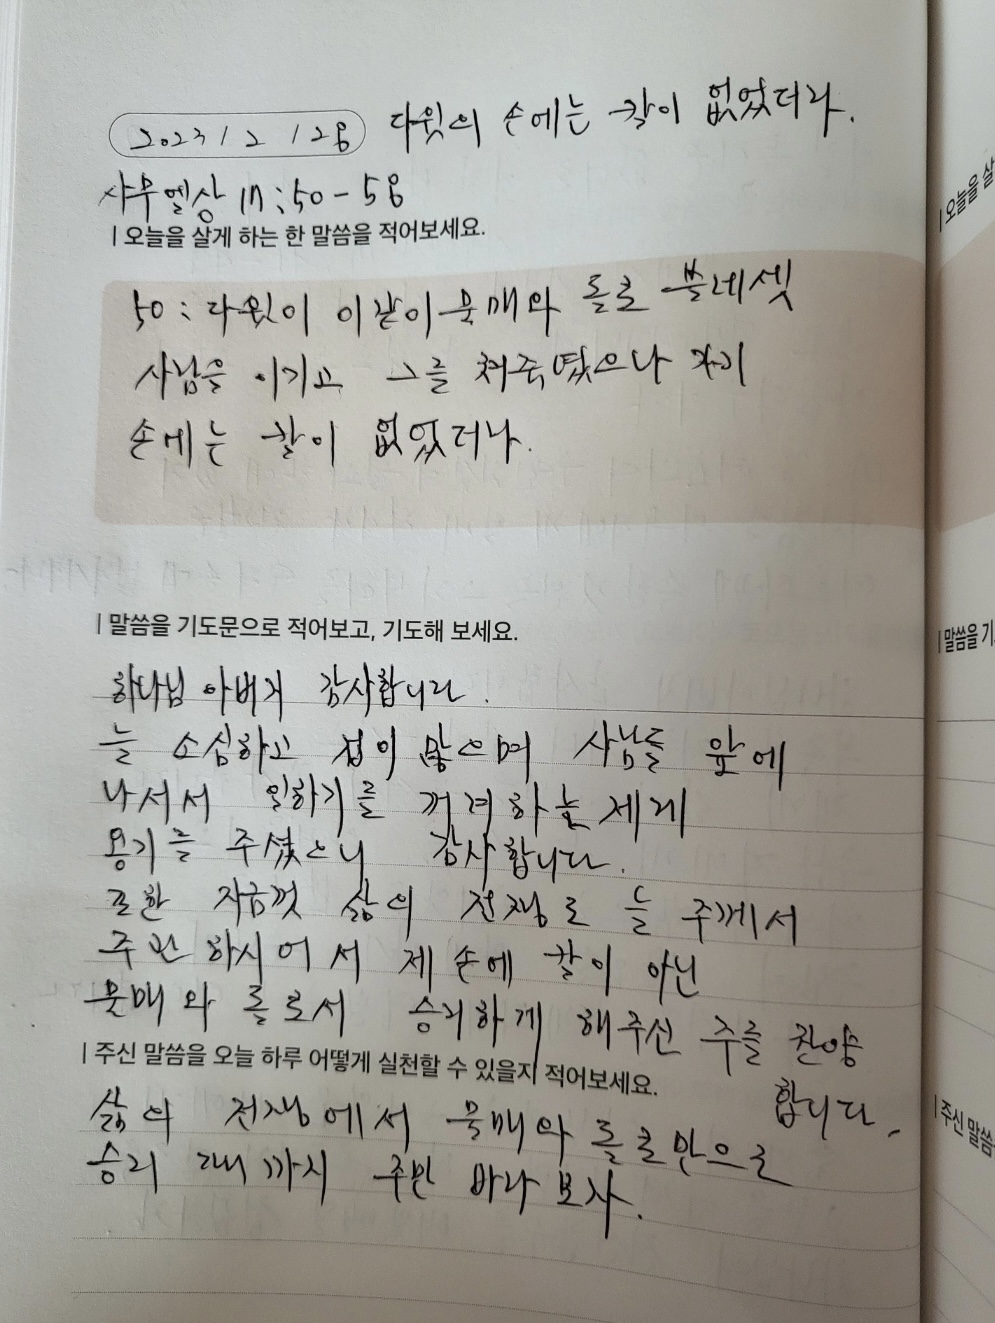 2023 / 2 / 28 다윗의 손에는 칼이 없었더라.
사무엘상 17:50-58
| 오늘을 살게 하는 한 말씀을 적어보세요.
50: 다윗이 이같이 물매와 돌로 블레셋
사람을 이기고 그를 쳐죽였으나 자기
손에는 칼이 없었더라.
| 말씀을 기도문으로 적어보고, 기도해 보세요.
하나님 아버지 감사합니다.
늘 소심하고 겁이 많으며 사람들 앞에
나서서 일하기를 꺼려하는 제게
용기를 주셨으니 감사합니다.
또한 지금껏 삶의 전쟁로 늘 주께서
주관하시어서 제 손에 칼이 아닌
물매와 돌로서 승리하게 해주신 주를 찬양
합니다.
| 주신 말씀을 오늘 하루 어떻게 실천할 수 있을지 적어보세요.
삶의 전쟁에서 물매와 돌로만으로
승리 때까지 주만 바라보자.
| 오늘을 살
| 말씀을 기
| 주신 말씀